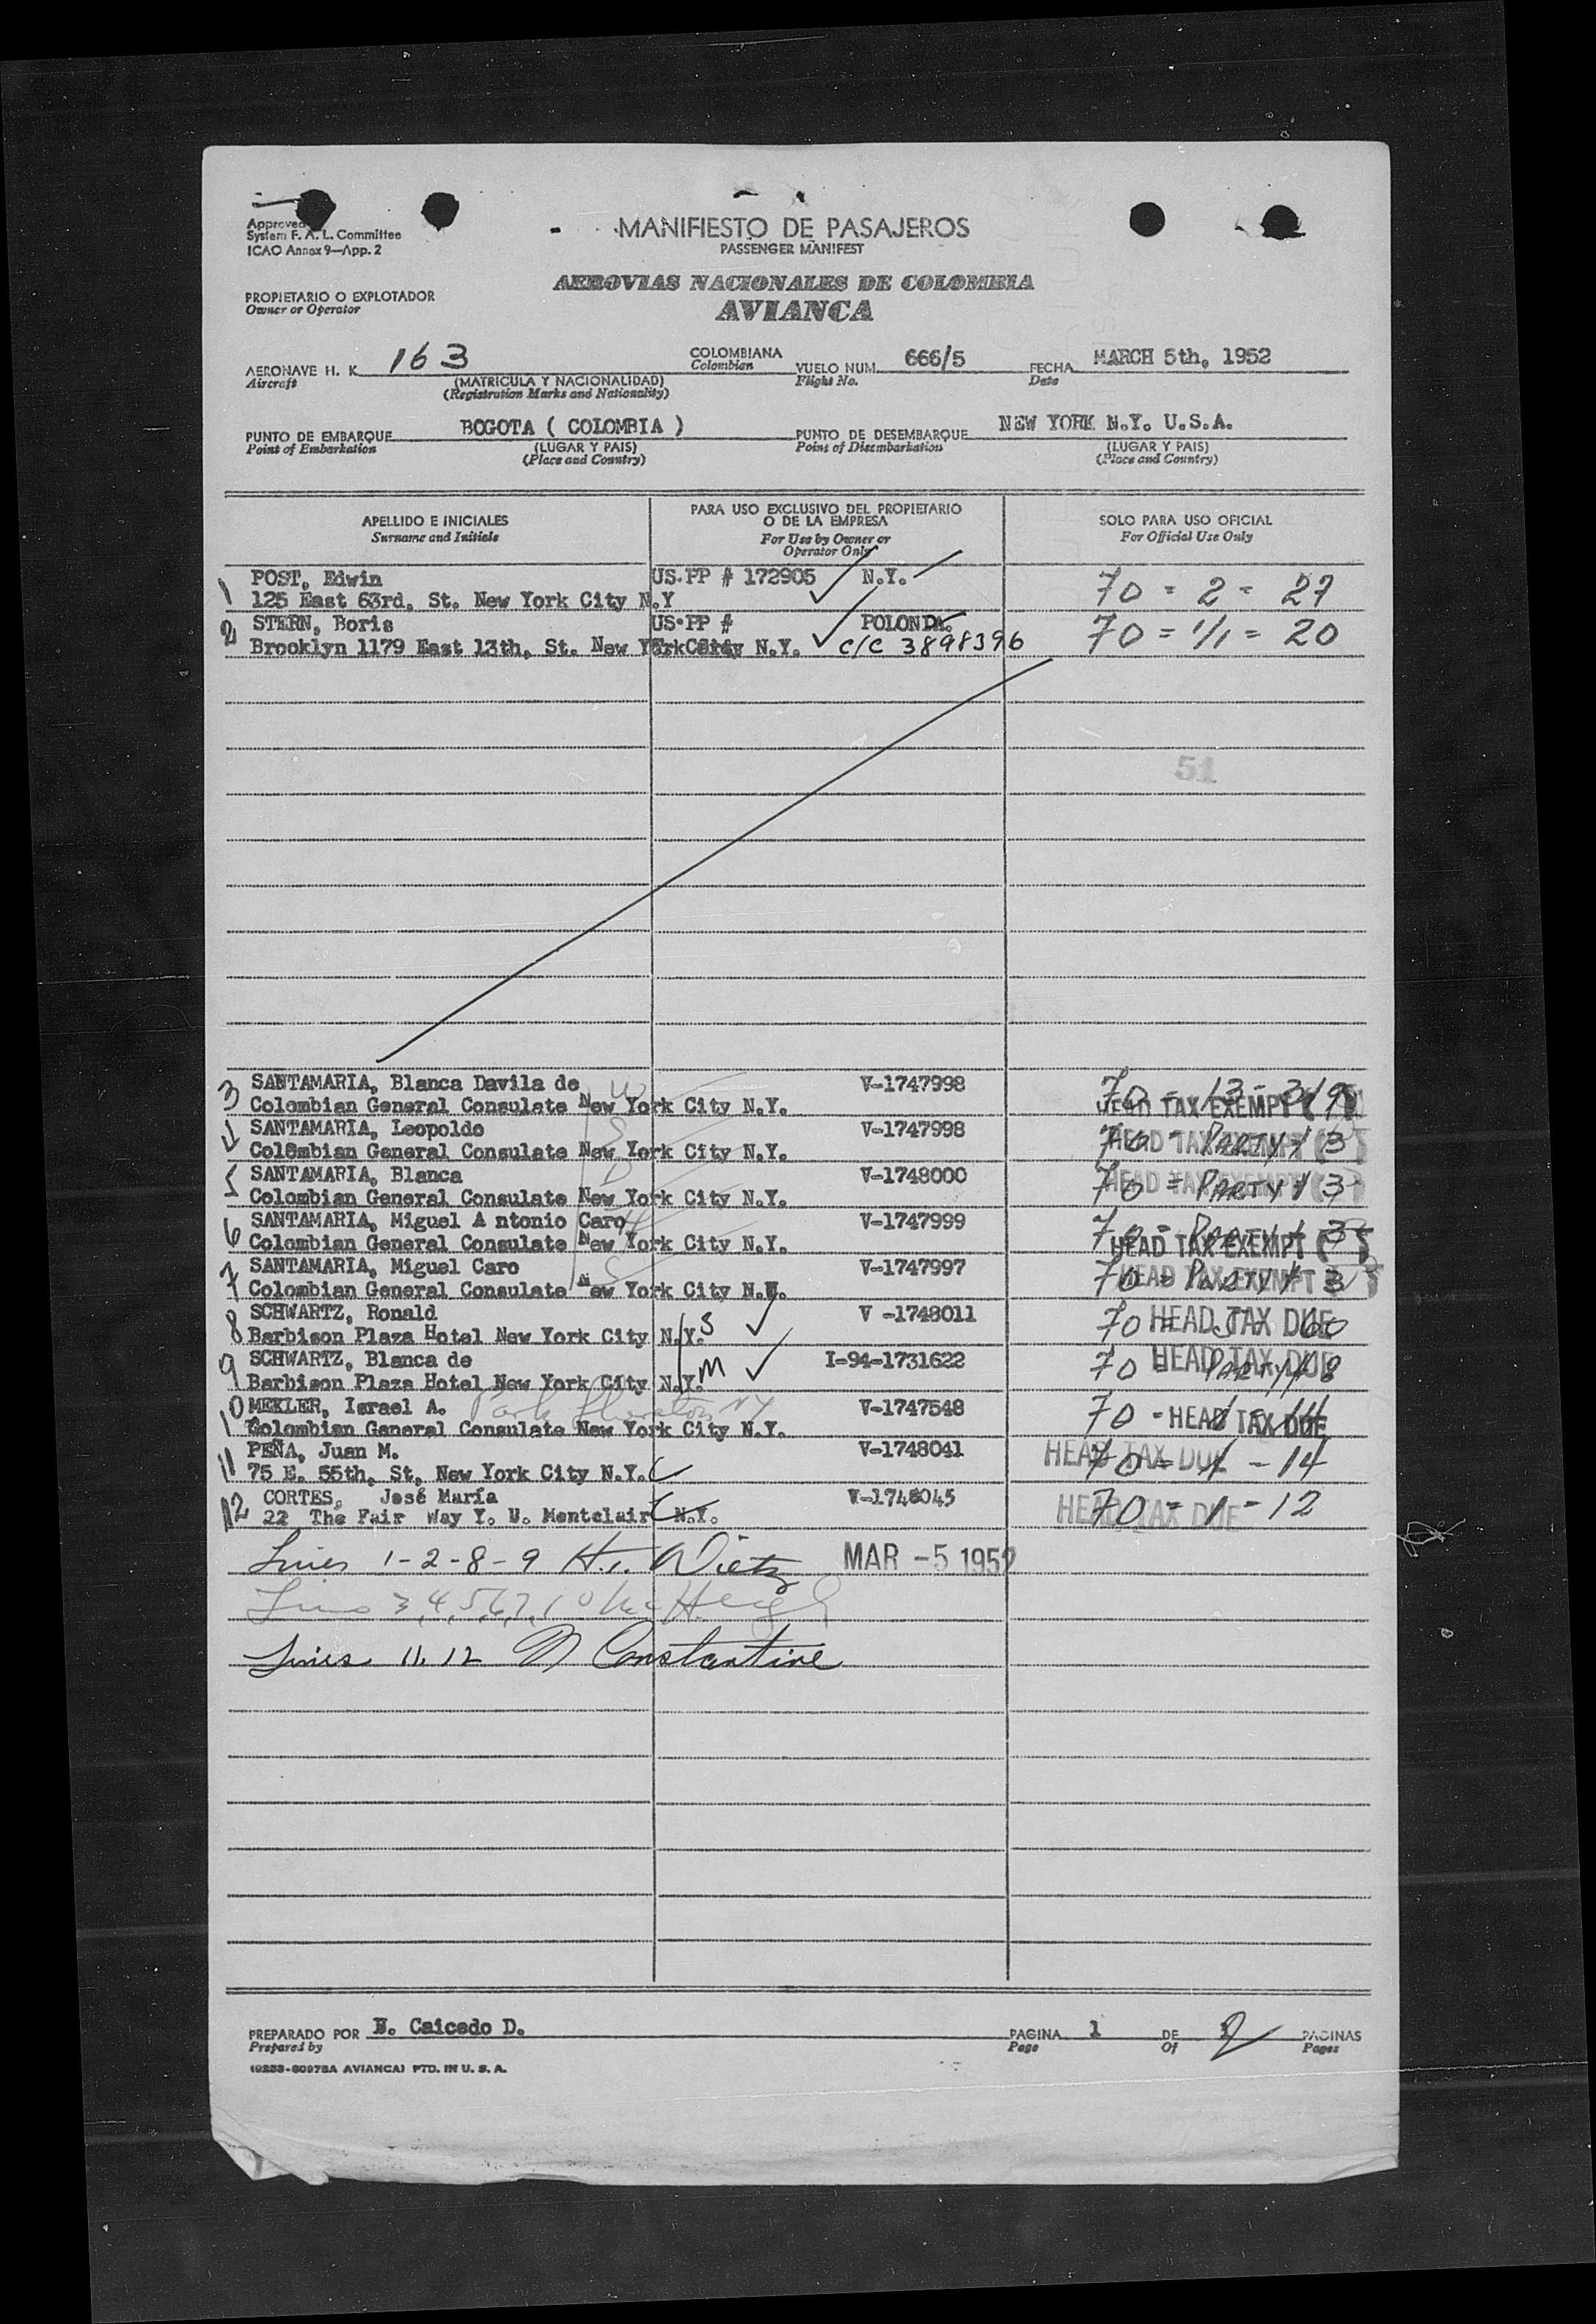 Approved
System F. A. L. Committee
ICAO Annex 9—App. 2
MANIFIESTO DE PASAJEROS
PASSENGER MANIFEST
AEROVIAS NACIONALES DE COLOMBIA
AVIANCA
PROPIETARIO O EXPLOTADOR
Owner or Operator
AERONAVE H. K. 163 COLOMBIANA VUELO NUM. 666/5 FECHA MARCH 5th, 1952
Aircraft Colombian Flight No. Date
(MATRICULA Y NACIONALIDAD)
(Registration Marks and Nationality)
PUNTO DE EMBARQUE BOGOTA ( COLOMBIA ) PUNTO DE DESEMBARQUE NEW YORK N.Y. U.S.A.
Point of Embarkation (LUGAR Y PAIS) Point of Disembarkation (LUGAR Y PAIS)
(Place and Country) (Place and Country)
APELLIDO E INICIALES PARA USO EXCLUSIVO DEL PROPIETARIO O DE LA EMPRESA SOLO PARA USO OFICIAL
Surname and Initials For Use by Owner or Operator Only For Official Use Only
1 POST, Edwin US.PP # 172905 N.Y. 70 = 2 - 27
125 East 63rd, St. New York City N.Y
2 STERN, Boris US.PP # POLONDA. 70 = 1/1 = 20
Brooklyn 1179 East 13th, St. New York City N.Y. C/C 3898396
51
3 SANTAMARIA, Blanca Davila de V-1747998 70 - 13 -
Colombian General Consulate New York City N.Y. HEAD TAX EXEMPT
4 SANTAMARIA, Leopoldo V-1747998 70 - PARTY / 3
Colombian General Consulate New York City N.Y. HEAD TAX EXEMPT
5 SANTAMARIA, Blanca V-1748000 70 = PARTY / 3
Colombian General Consulate New York City N.Y. HEAD TAX EXEMPT
6 SANTAMARIA, Miguel A ntonio Caro V-1747999 70 - PARTY / 3
Colombian General Consulate New York City N.Y. HEAD TAX EXEMPT
7 SANTAMARIA, Miguel Caro V-1747997 70 = PARTY / 3
Colombian General Consulate New York City N.Y. HEAD TAX EXEMPT
8 SCHWARTZ, Ronald V -1748011 70 HEAD TAX DUE
Barbison Plaza Hotel New York City N.Y. S
9 SCHWARTZ, Blanca de I-94-1731622 70 PARTY / 8 HEAD TAX DUE
Barbison Plaza Hotel New York City N.Y. M
10 MEKLER, Israel A. V-1747548 70 - HEAD TAX DUE
Colombian General Consulate New York City N.Y.
11 PEÑA, Juan M. V-1748041 70 = 1 - 14 HEAD TAX DUE
75 E. 55th, St, New York City N.Y.
12 CORTES, José María V-1748045 70 = 1 - 12 HEAD TAX DUE
22 The Fair Way Y. U. Montclair N.Y.
Lines 1-2-8-9 MAR -5 1952
Lines 3,4,5,6,7,10
Lines 11, 12 Constantine
PREPARADO POR N. Caicedo D. PAGINA 1 DE 2 PAGINAS
Prepared by Page Of Pages
(0253-60975A AVIANCA) PTD. IN U. S. A.